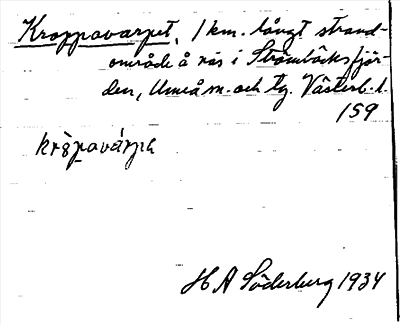 Kroppavarpet, 1 km. långt strand-
område å näs i Strömbäcksfjär-
den, Umeå sn. och tg. Västerb. l.
159
kròpavárpe
H A Söderberg 1934